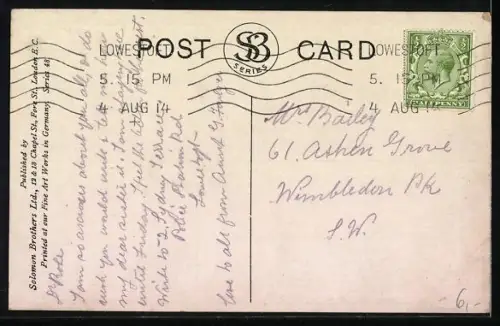 POST CARD
SB
SERIES
LOWESTOFT
5. 15 PM
4 AUG 14
LOWESTOFT
5. 15 PM
4 AUG 14
HALFPENNY
Published by
Solomon Brothers Ltd., 12 & 13 Chapel St., Fore St., London E.C.
Printed at our Fine Art Works in Germany. Series 48
I am so anxious about you all, & do
wish you would write & tell me how
my dear is. I am staying here
until Friday. I feel the better for the rest.
Write to 2 Sydney Terrace
Rd
Lowestoft
Love to all from Aunt
Mrs Bailey
61 Ashen Grove
Wimbledon Pk
S.W.
6,-